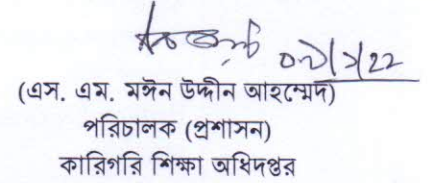 (এস. এম. মঈন উদ্দীন আহম্মেদ)
পরিচালক (প্রশাসন)
কারিগরি শিক্ষা অধিদপ্তর